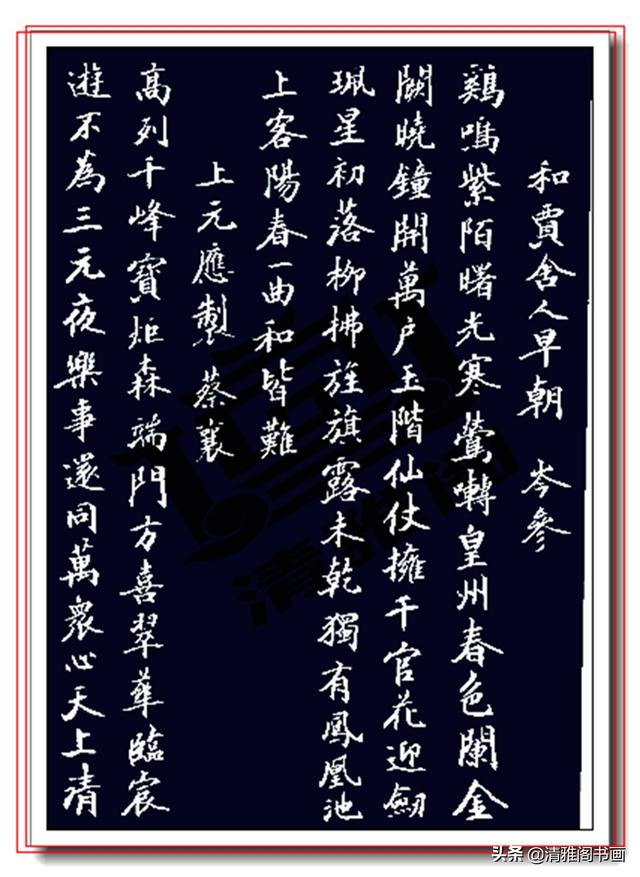 和賈舍人早朝 岑參
鷄鳴紫陌曙光寒鶯囀皇州春色闌金
闕曉鐘開萬户玉階仙仗擁千官花迎劔
珮星初落柳拂旌旗露未乾獨有鳳凰池
上客陽春一曲和皆難
上元應製 蔡襄
高列千峰寶炬森端門方喜翠華臨宸
遊不為三元夜樂事還同萬衆心天上清
清雅阁
头条@清雅阁书画